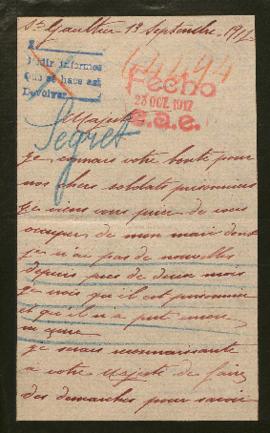 St Gaultier 13 Septembre 1917
Pedir informes
Que se hace así
Devolver
64494
Fecho
23 OCT. 1917
e.a.e.
Majesté
Segret
Je connais votre bonté pour
nos chers soldats prisonniers
Je viens vous prier de vous
occuper de mon mari dont
je n'ai pas de nouvelles
depuis près de deux mois
Je crois qu'il est prisonnier
et qu'il n'a put encore
Je serais reconnaissante
a votre Majesté de faire
des démarches pour savoir